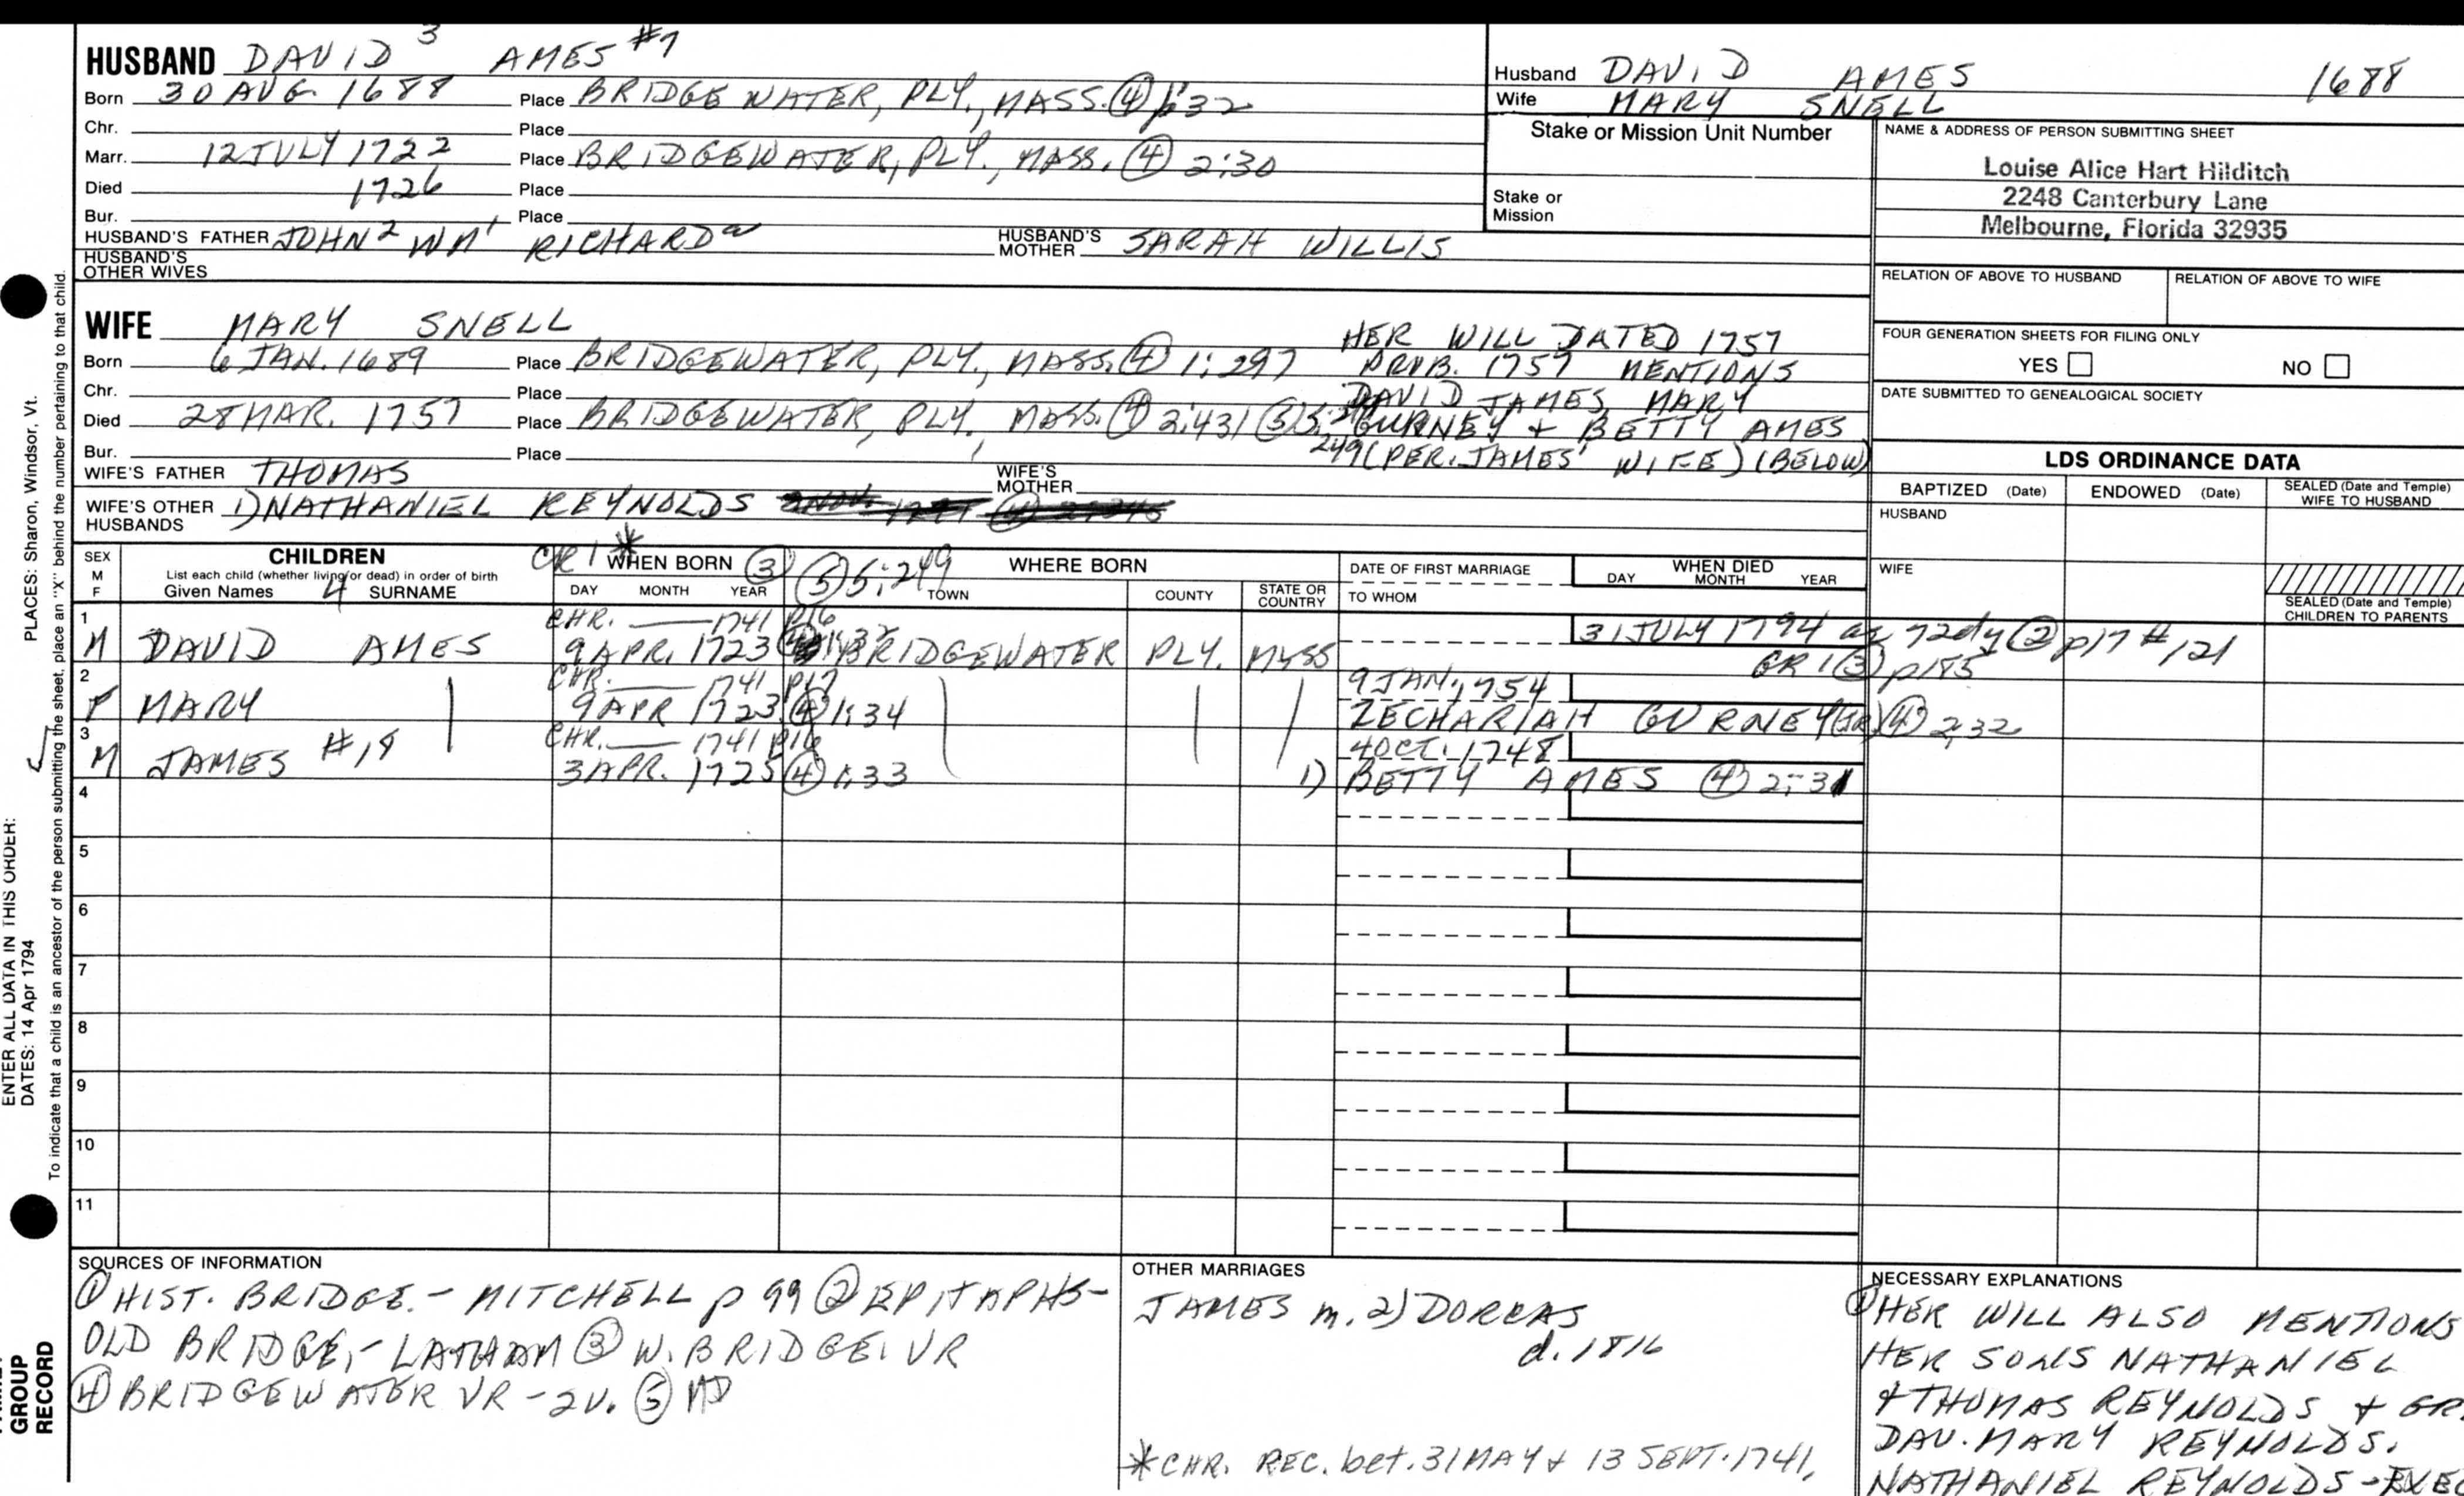 HUSBAND DAVID 3 AMES #7
Born 30 AUG. 1688 Place BRIDGEWATER, PLY., MASS. ④ 1:32
Chr. Place
Marr. 12 JULY 1722 Place BRIDGEWATER, PLY., MASS. ④ 2:30
Died 1726 Place
Bur. Place
HUSBAND'S FATHER JOHN 2 WM 1 RICHARD a HUSBAND'S MOTHER SARAH WILLIS
HUSBAND'S OTHER WIVES
Husband DAVID AMES 1688
Wife MARY SNELL
Stake or Mission Unit Number
Stake or
Mission
NAME & ADDRESS OF PERSON SUBMITTING SHEET
Louise Alice Hart Hilditch
2248 Canterbury Lane
Melbourne, Florida 32935
RELATION OF ABOVE TO HUSBAND RELATION OF ABOVE TO WIFE
FOUR GENERATION SHEETS FOR FILING ONLY
YES NO
DATE SUBMITTED TO GENEALOGICAL SOCIETY
WIFE MARY SNELL
Born 6 JAN. 1689 Place BRIDGEWATER, PLY., MASS. ④ 1:297
Chr. Place
Died 28 MAR. 1757 Place BRIDGEWATER, PLY., MASS. ④ 2:431 ⑤ 5:249
Bur. Place
HER WILL DATED 1757
PROB. 1757 MENTIONS
DAVID JAMES, MARY
GURNEY + BETTY AMES
249 (PER. JAMES' WIFE) (BELOW)
WIFE'S FATHER THOMAS WIFE'S MOTHER
WIFE'S OTHER HUSBANDS 1) NATHANIEL REYNOLDS
LDS ORDINANCE DATA
BAPTIZED (Date) ENDOWED (Date) SEALED (Date and Temple) WIFE TO HUSBAND
HUSBAND
WIFE
SEALED (Date and Temple) CHILDREN TO PARENTS
SEX
M
F
CHILDREN
List each child (whether living or dead) in order of birth
Given Names 4 SURNAME
CR 1 * WHEN BORN ③
DAY MONTH YEAR
⑤ 5:249 WHERE BORN
TOWN COUNTY STATE OR COUNTRY
DATE OF FIRST MARRIAGE
TO WHOM
WHEN DIED
DAY MONTH YEAR
1 CHR. — 1741 p16
M DAVID AMES 9 APR. 1723 ④ 1:32 BRIDGEWATER PLY. MASS 31 JULY 1794 ae 72dy ② p17 #121
GR 1 ③ p185
2 CHR. — 1741 p17 9 JAN. 1754
F MARY 9 APR 1723 ④ 1:34 ZECHARIAH GURNEY (JR) ④ 2:32
3 CHR. — 1741 p16 4 OCT. 1748
M JAMES #18 3 APR. 1725 ④ 1:33 1) BETTY AMES ④ 2:31
4
5
6
7
8
9
10
11
SOURCES OF INFORMATION
① HIST. BRIDGE. - MITCHELL p 99 ② EPITAPHS-
OLD BRIDGE, - LATHAM ③ W. BRIDGE. VR
④ BRIDGEWATER VR - 2V. ⑤ MD
OTHER MARRIAGES
JAMES m. 2) DORCAS
d. 1816
* CHR. REC. bet. 31 MAY + 13 SEPT. 1741,
NECESSARY EXPLANATIONS
① HER WILL ALSO MENTIONS
HER SONS NATHANIEL
+ THOMAS REYNOLDS + GR.
DAU. MARY REYNOLDS.
NATHANIEL REYNOLDS - EXEC
PLACES: Sharon, Windsor, Vt.
ENTER ALL DATA IN THIS ORDER:
DATES: 14 Apr 1794
To indicate that a child is an ancestor of the person submitting the sheet, place an "X" behind the number pertaining to that child.
GROUP
RECORD